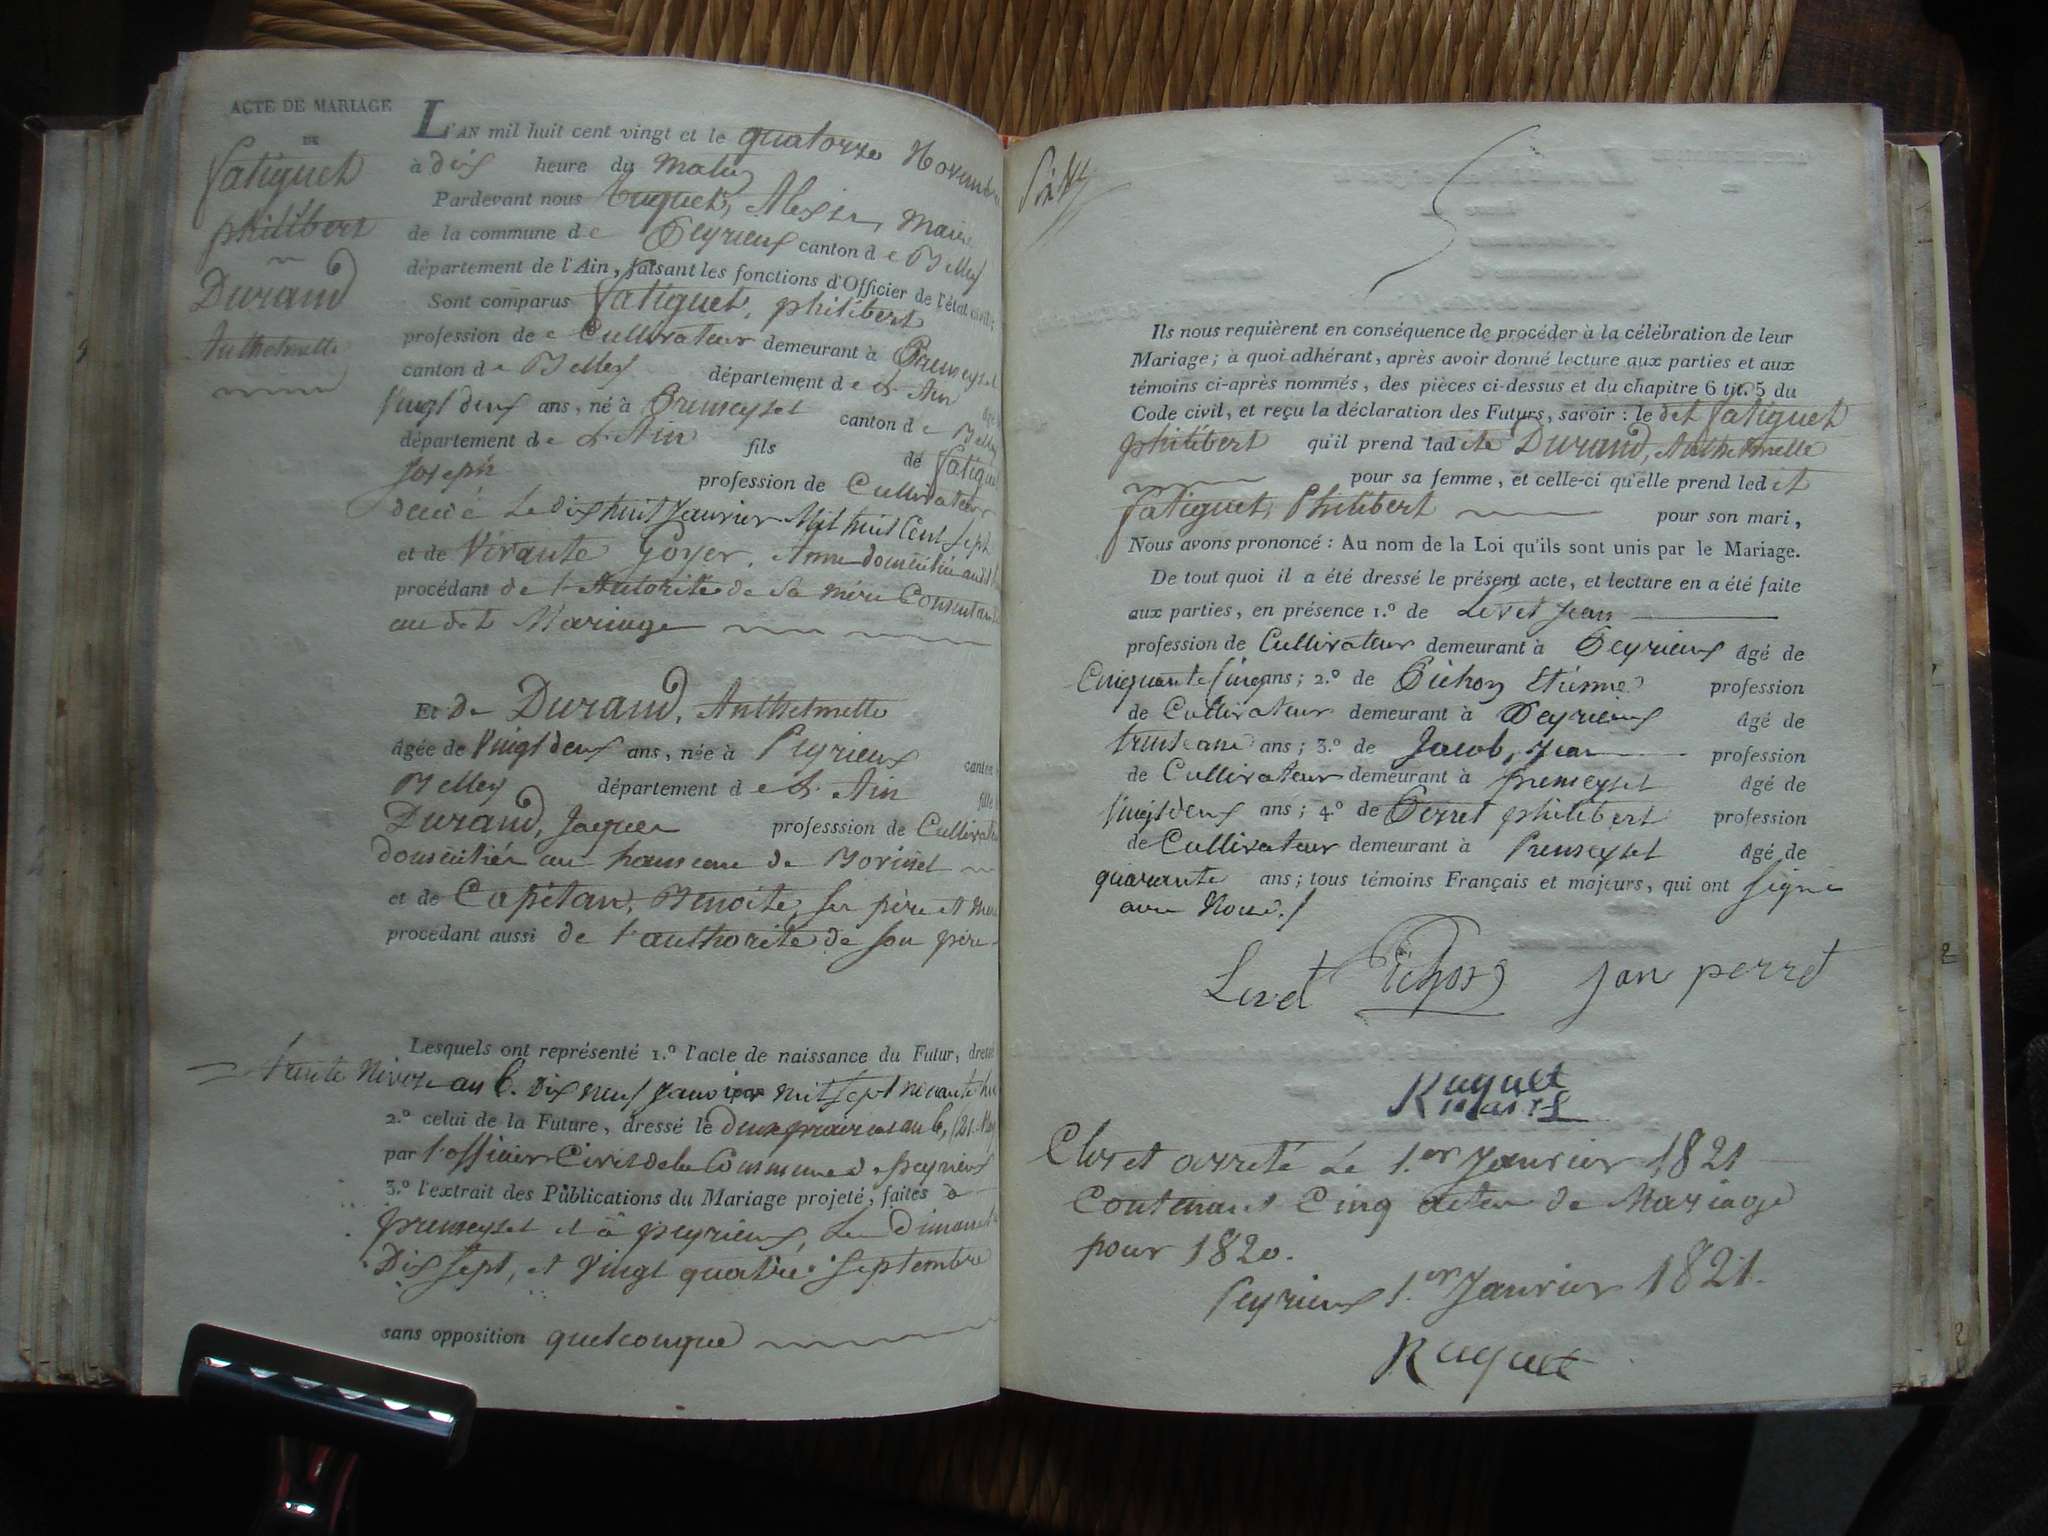 ACTE DE MARIAGE
DE
Fatiguet
philibert
Durand
Anthelmette
L'AN mil huit cent vingt et le quatorze Novembre
à dix heure du Matin
Pardevant nous Ruguet, Alexis, Maire
de la commune de Peyrieux canton de Belley
département de l'Ain, faisant les fonctions d'Officier de l'état civil;
Sont comparus Fatiguet, philibert
profession de Cultivateur demeurant à Premeyzel
canton de Belley département de l'Ain âgé
Vingt deux ans, né à Premeyzel canton de Belley
département de l'Ain fils de Fatiguet
Joseph profession de Cultivateur
décédé Le dix huit Janvier Mil huit Cent Sept
et de Vivante Goyer, Anne domiciliée audit
procédant de l'Autorité de Sa mère Consentante
au dit Mariage
Et de Durand, Anthelmette
âgée de Vingt deux ans, née à Peyrieux canton
Belley département de l'Ain fille
Durand, Jaques professsion de Cultivateur
domiciliés au hameau de Borinet
et de Capitan, Benoite, ses père et mère
procédant aussi de l'authorité de son père
Lesquels ont représenté 1.º l'acte de naissance du Futur, dressé
trente Nivose an 6. Dix neuf Janvier mil sept nonante huit
2.º celui de la Future, dressé le deux prairial an 6, (21. May
par l'officier Civil de la Commune de peyrieux
3.º l'extrait des Publications du Mariage projeté, faites à
premeyzel et à peyrieux, les dimanches
Dix sept, et Vingt quatre Septembre
sans opposition quelconque
Ils nous requièrent en conséquence de procéder à la célébration de leur
Mariage; à quoi adhérant, après avoir donné lecture aux parties et aux
témoins ci-après nommés, des pièces ci-dessus et du chapitre 6 tit. 5 du
Code civil, et reçu la déclaration des Futurs, savoir: le dit Fatiguet
philibert qu'il prend ladite Durand, Anthelmette
pour sa femme, et celle-ci qu'elle prend ledit
Fatiguet, Philibert pour son mari,
Nous avons prononcé: Au nom de la Loi qu'ils sont unis par le Mariage.
De tout quoi il a été dressé le présent acte, et lecture en a été faite
aux parties, en présence 1.º de Levet Jean
profession de Cultivateur demeurant à Peyrieux âgé de
Cinquante Cinq ans; 2.º de Pichon Etienne profession
de Cultivateur demeurant à Peyrieux âgé de
ans; 3.º de Jacob, Jean profession
de Cultivateur demeurant à premeyzel âgé de
Vingt deux ans; 4.º de Perret philibert profession
de Cultivateur demeurant à Premeyzel âgé de
quarante ans; tous témoins Français et majeurs, qui ont Signé
avec Nous./
Levet Pichon Jan perret
Ruguet
maire
Clos et arreté Le 1.er Janvier 1821
Contenant Cinq actes de Mariage
pour 1820.
Peyrieux 1.er Janvier 1821.
Ruguet